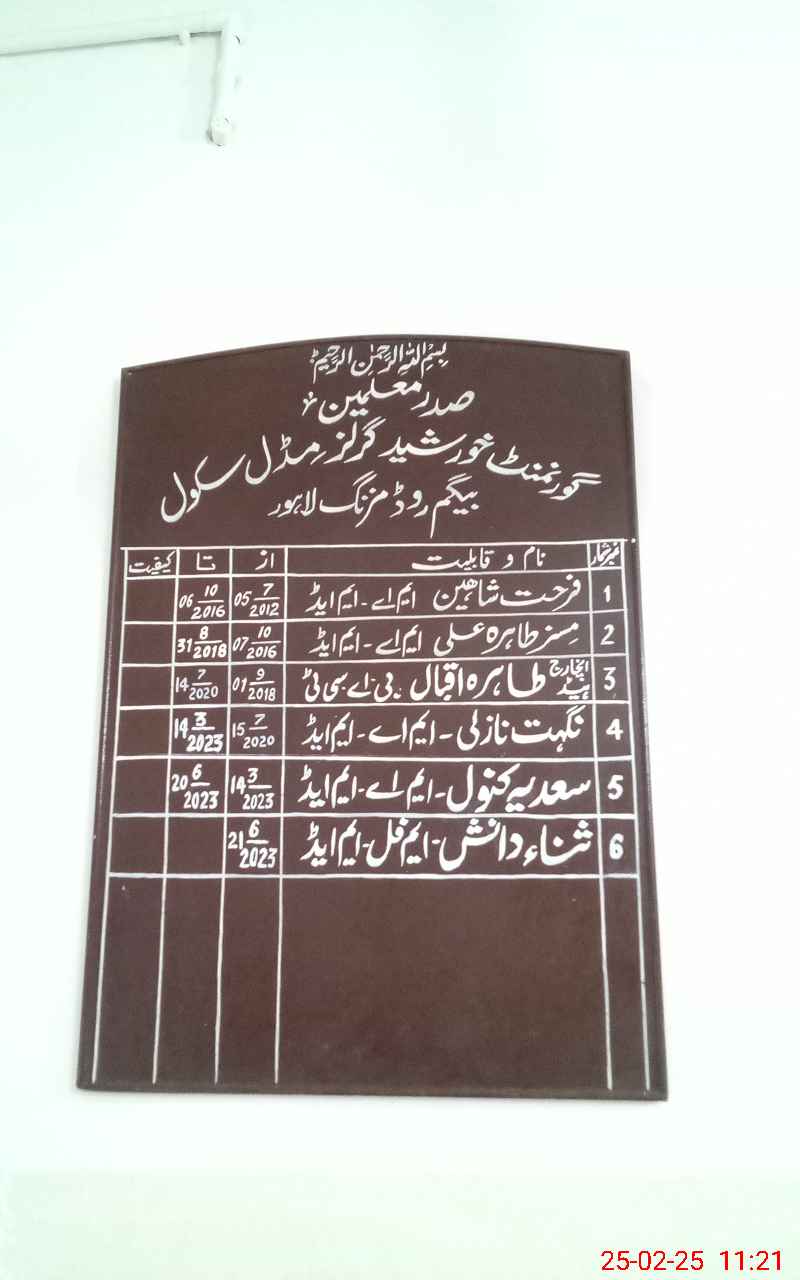 بسم اللہ الرحمٰن الرحیم
صدر معلمین
گورنمنٹ خورشید گرلز مڈل سکول
بیگم روڈ مزنگ لاہور
نمبر شمار نام و قابلیت از تا کیفیت
1 فرحت شاھین ایم اے - ایم ایڈ 05 7/2012 06 10/2016
2 مسز طاہرہ علی ایم اے - ایم ایڈ 07 10/2016 31 8/2018
3 انچارج ہیڈ طاہرہ اقبال بی اے سی ٹی 01 9/2018 14 7/2020
4 نگہت نازلی - ایم اے - ایم ایڈ 15 7/2020 14 3/2023
5 سعدیہ کنول - ایم اے - ایم ایڈ 14 3/2023 20 6/2023
6 ثناء دانش - ایم فل - ایم ایڈ 21 6/2023
25-02-25 11:21